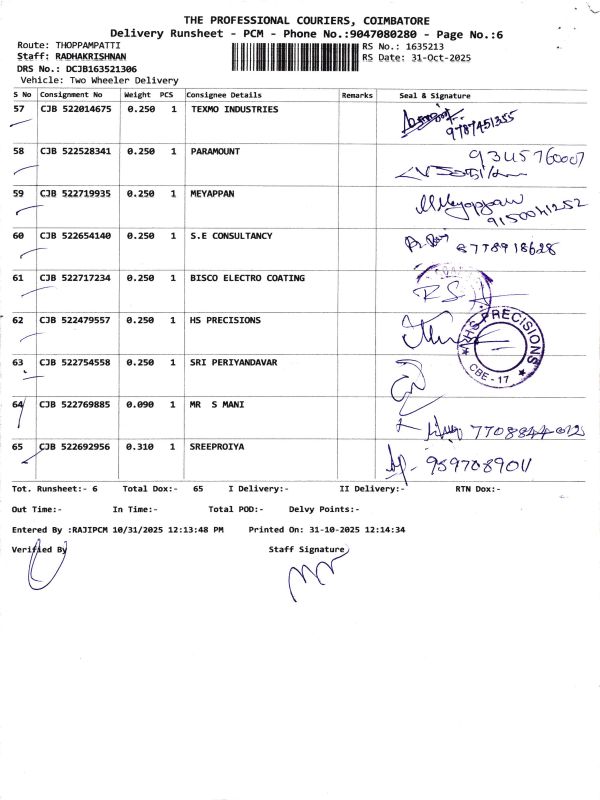 THE PROFESSIONAL COURIERS, COIMBATORE
Delivery Runsheet - PCM - Phone No.:9047080280 - Page No.:6
Route: THOPPAMPATTI RS No.: 1635213
Staff: RADHAKRISHNAN RS Date: 31-Oct-2025
DRS No.: DCJB163521306
Vehicle: Two Wheeler Delivery
S No Consignment No Weight PCS Consignee Details Remarks Seal & Signature
57 CJB 522014675 0.250 1 TEXMO INDUSTRIES
9787451355
58 CJB 522528341 0.250 1 PARAMOUNT
9345760007
59 CJB 522719935 0.250 1 MEYAPPAN
M.Meyappan
9150041252
60 CJB 522654140 0.250 1 S.E CONSULTANCY
8778918628
61 CJB 522717234 0.250 1 BISCO ELECTRO COATING
62 CJB 522479557 0.250 1 HS PRECISIONS
HS PRECISIONS
CBE - 17
63 CJB 522754558 0.250 1 SRI PERIYANDAVAR
64 CJB 522769885 0.090 1 MR S MANI
7708844012
65 CJB 522692956 0.310 1 SREEPROIYA
9597089011
Tot. Runsheet:- 6 Total Dox:- 65 I Delivery:- II Delivery:- RTN Dox:-
Out Time:- In Time:- Total POD:- Delvy Points:-
Entered By :RAJIPCM 10/31/2025 12:13:48 PM Printed On: 31-10-2025 12:14:34
Verified By Staff Signature